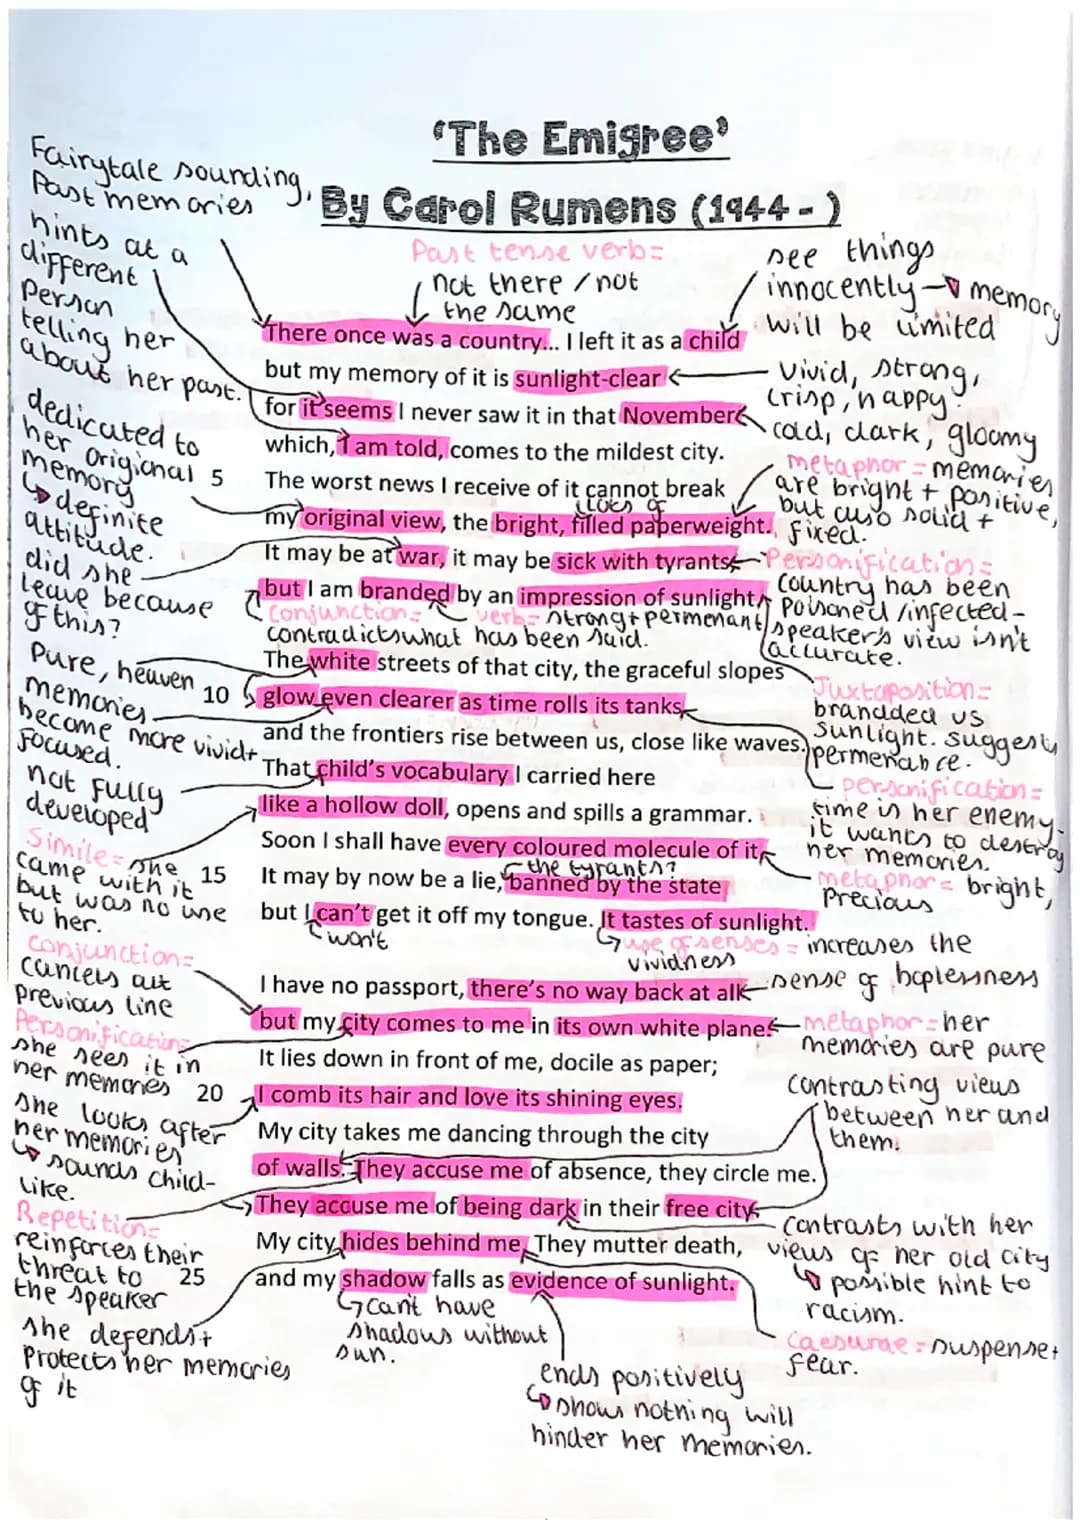 'The Emigree'
By Carol Rumens (1944 - )
Fairytale sounding,
Past memories
hints at a
different
person
telling her
about her past.
Past tense verb=
not there / not
the same
see things
innocently → memory
will be limited
There once was a country... I left it as a child
but my memory of it is sunlight-clear
vivid, strong,
crisp, happy
for it seems I never saw it in that November
cold, dark, gloomy
which, I am told, comes to the mildest city.
dedicated to
her origional
memory
↳ definite
attitude.
5 The worst news I receive of it cannot break
metaphor = memories
are bright + positive,
but also solid +
fixed.
lots of
my original view, the bright, filled paperweight.
It may be at war, it may be sick with tyrants,
Personification=
country has been
poisoned / infected -
speaker's view isn't
accurate.
did she
leave because
of this?
but I am branded by an impression of sunlight.
Conjunction=
contradicts what has been said.
verb= strong + permenant
The white streets of that city, the graceful slopes
Pure, heaven
memories
become more vivid +
focused.
10 glow even clearer as time rolls its tanks
Juxtaposition=
brandded us
sunlight. suggests
permenance.
and the frontiers rise between us, close like waves.
That child's vocabulary I carried here
not fully
developed
personification=
time is her enemy.
it wants to destroy
her memories.
like a hollow doll, opens and spills a grammar.
Simile= she
came with it
but was no use
to her.
Soon I shall have every coloured molecule of it.
metaphor= bright,
Precious
the tyrants?
15 It may by now be a lie, banned by the state
but I can't get it off my tongue. It tastes of sunlight.
won't
use of senses = increases the
vividness
I have no passport, there's no way back at all
sense of hoplessness
Conjunction=
cancels out
previous line
but my city comes to me in its own white plane.
metaphor= her
memories are pure
Personification=
she sees it in
her memories
It lies down in front of me, docile as paper;
20 I comb its hair and love its shining eyes.
she looks after
her memories
↳ sounds child-
like.
contrasting views
between her and
them.
My city takes me dancing through the city
of walls. They accuse me of absence, they circle me.
They accuse me of being dark in their free city.
Repetition=
reinforces their
threat to
the speaker
contrasts with her
views of her old city
↳ possible hint to
racism.
My city hides behind me. They mutter death,
25 and my shadow falls as evidence of sunlight.
she defends +
protects her memories
of it
can't have
shadows without
sun.
Caesurae = suspense +
fear.
ends positively
↳ shows nothing will
hinder her memories.